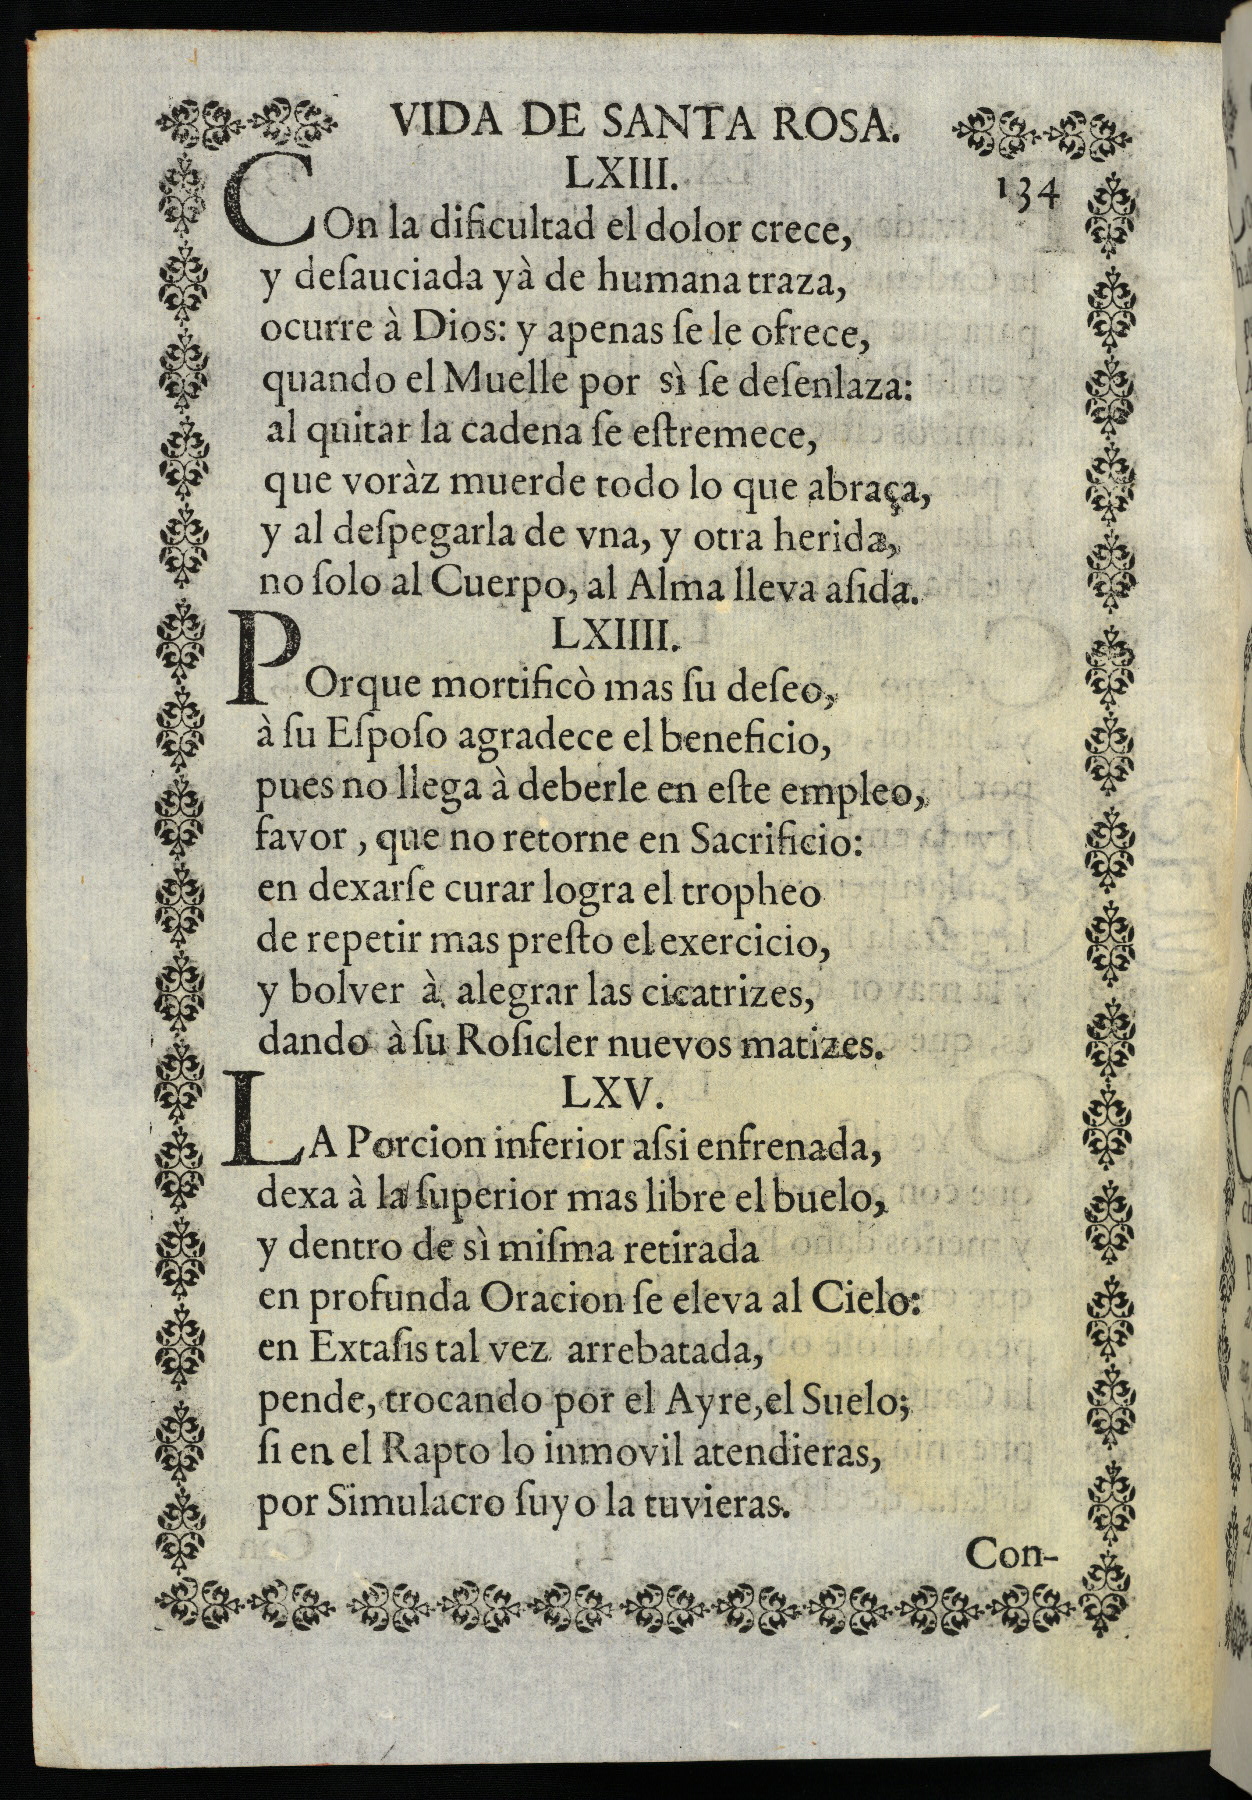 VIDA DE SANTA ROSA.
LXIII.
134
COn la dificultad el dolor crece,
y deſauciada yà de humana traza,
ocurre à Dios: y apenas ſe le ofrece,
quando el Muelle por sì ſe deſenlaza:
al quitar la cadena ſe eſtremece,
que voràz muerde todo lo que abraça,
y al deſpegarla de vna, y otra herida,
no ſolo al Cuerpo, al Alma lleva aſida.
LXIIII.
POrque mortificò mas ſu deſeo,
à ſu Eſpoſo agradece el beneficio,
pues no llega à deberle en eſte empleo,
favor, que no retorne en Sacrificio:
en dexarſe curar logra el tropheo
de repetir mas preſto el exercicio,
y bolver à alegrar las cicatrizes,
dando à ſu Roſicler nuevos matizes.
LXV.
LA Porcion inferior aſsi enfrenada,
dexa à la ſuperior mas libre el buelo,
y dentro de sì miſma retirada
en profunda Oracion ſe eleva al Cielo:
en Extaſis tal vez arrebatada,
pende, trocando por el Ayre, el Suelo;
ſi en el Rapto lo inmovil atendieras,
por Simulacro ſuyo la tuvieras.
Con-